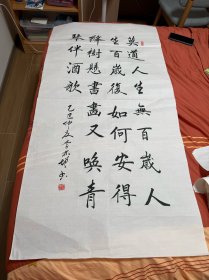 莫道人生無百歲人
生百歲復如何安得
樹懸書畫又喚青
琴伴酒歌
乙巳仲夏